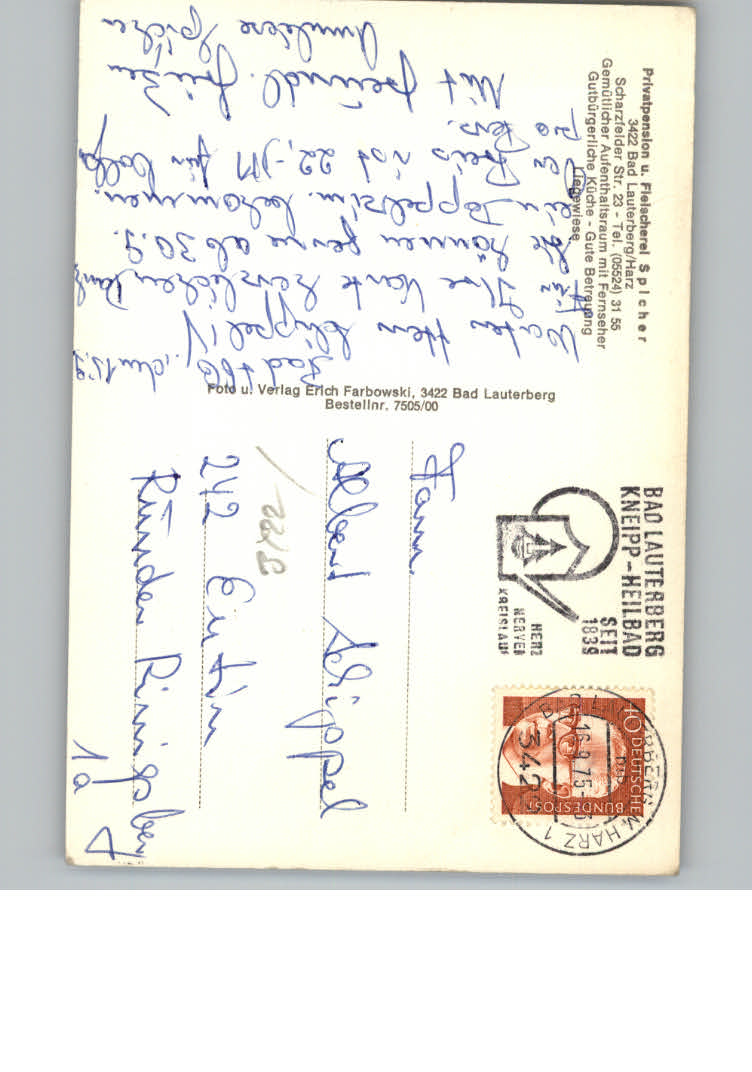 Privatpension u. Fleischerei Spicher
3422 Bad Lauterberg/Harz
Scharzfelder Str. 23 - Tel. (05524) 31 55
Gemütlicher Aufenthaltsraum mit Fernseher
Gutbürgerliche Küche - Gute Betreuung
Liegewiese
Bad Lbg., den 15.9.
Werter Herr Schippel!
Für Ihre Karte herzlichen Dank
Sie können gerne ab 30.9.
ein Doppelzim. bekommen.
Der Preis ist 22,- DM für
pro Pers.
Mit freundl. Grüßen
Spicher
Foto u. Verlag Erich Farbowski, 3422 Bad Lauterberg
Bestellnr. 7505/00
BAD LAUTERBERG
KNEIPP-HEILBAD
SEIT
1839
HERZ
NERVEN
KREISLAUF
40 DEUTSCHE
BUNDESPOST
16.9.75
342
HARZ 1
Fam.
Albert Schippel
242 Eutin
1a